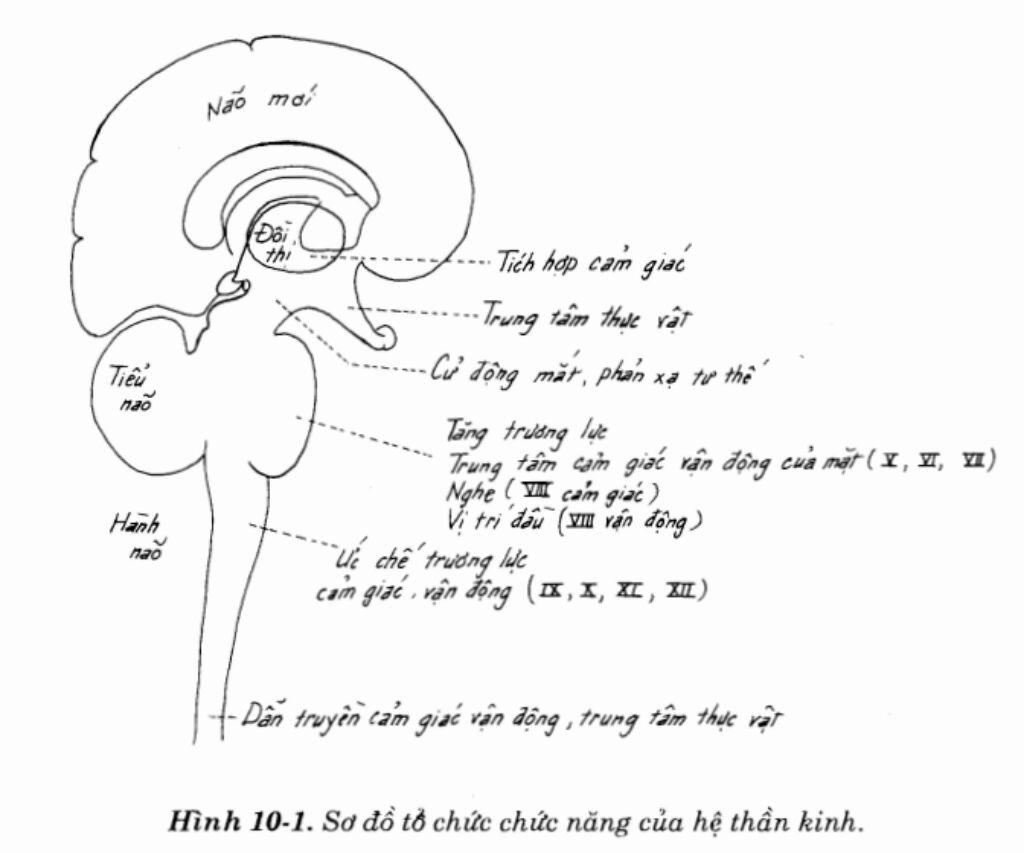 Não mới
Đồi
thị
Tích hợp cảm giác
Trung tâm thực vật
Cử động mắt, phản xạ tư thế
Tiểu
não
Tăng trương lực
Trung tâm cảm giác vận động của mặt (V, VI, VII)
Nghe (VIII cảm giác)
Vị trí đầu (VIII vận động)
Hành
não
Ức chế trương lực
cảm giác, vận động (IX, X, XI, XII)
Dẫn truyền cảm giác vận động, trung tâm thực vật
Hình 10-1. Sơ đồ tổ chức chức năng của hệ thần kinh.